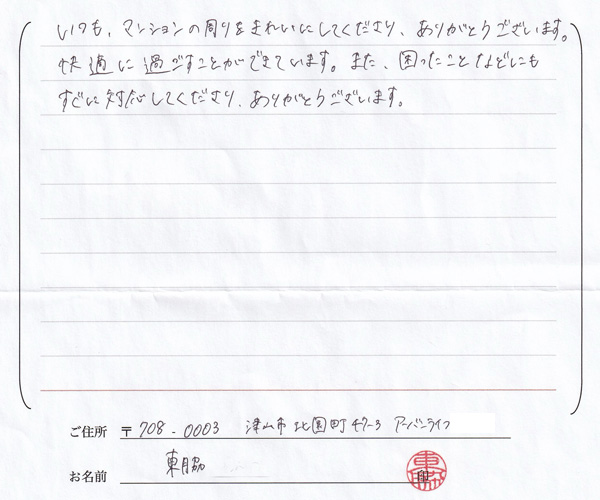 いつも、マンションの周りをきれいにしてくださり、ありがとうございます。
快適に過ごすことができています。また、困ったことなどにも
すぐに対応してくださり、ありがとうございます。
ご住所 〒708-0003 津山市北園町47-3 アーバンライフ
お名前 東脇 印